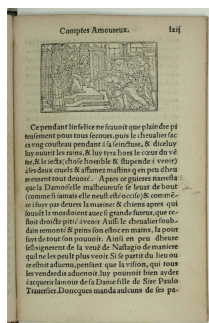 Comptes Amoureux. lxij
Ce pendant linfelice ne scauoit que plaindre pi
teusement pour tous secours, puis le cheualier sac
ca vng cousteau pendant à sa seincture, & diceluy
luy ouurit les rains, & luy tyra hors le cœur du vē
tre, & le iecta (chose horrible & stupende à veoir)
à ses deux cruelz & affamez mastins qui en peu dheu
re eurent tout deuoré. Apres ce guieres naresta
que la Damoiselle malheureuse se leuat de bout
(comme si iamais elle neust esté occise) & commē
ce à fuyr par deuers la marine: & chiens apres qui
souuēt la mordoient auec si grande fureur, que ce-
stoit droicte pitié à veoir Aussi le cheualier soub-
dain remonté & prins son estoc en mains, la pour
suyt de tout son pouuoir. Ainsi en peu dheure
seslognent de la veuë de Nastagio de maniere
quil ne les peult plus veoir. Si se partit du lieu ou
ce estoit aduenu, pensant que la vision, qui tous
les vendredis aduenoit, luy pourroit bien ayder
à acquerir lamour de sa Dame fille de Sire Paulo
Trauersier. Doncques manda aulcuns de ses pa-